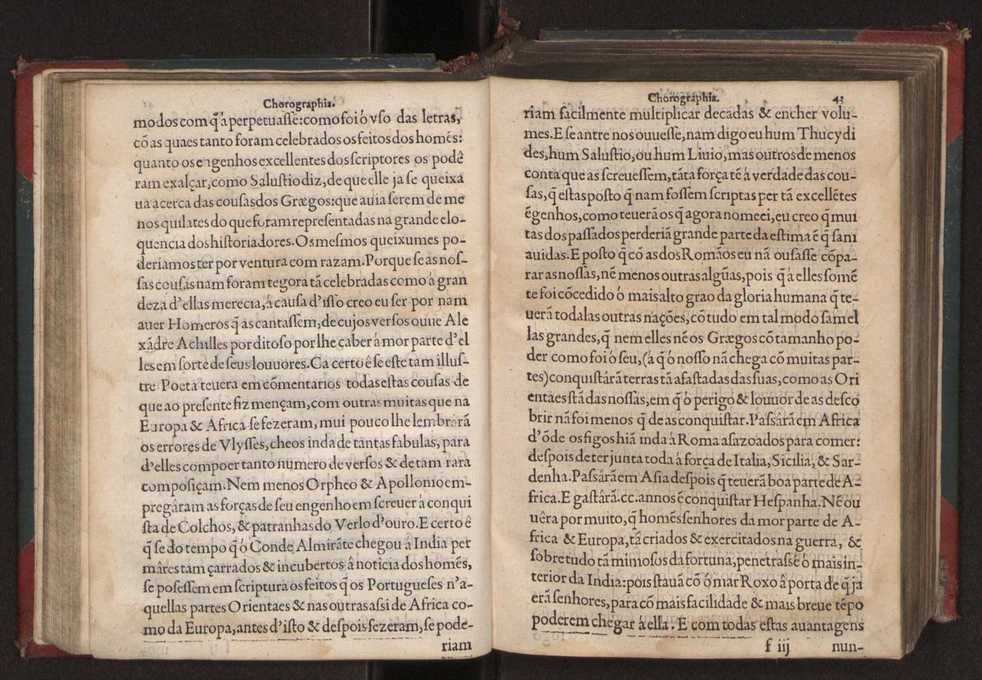 Chorographia.
modos com q̃ â perpetuasse: como foi ò vso das letras,
cõ as quaes tanto foram celebrados os feitos dos homẽs:
quanto os engenhos excellentes dos scriptores os podê
ram exalçar, como Salustio diz, de que elle ja se queixa
ua a cerca das cousas dos Græegos: que auia serem de me
nos quilates do que foram representadas na grande elo-
quencia dos historiadores. Os mesmos queixumes po-
deriamos ter por ventura com razam. Porque se as nos-
sas cousas nam foram tegora tã celebradas como á gran
deza d'ellas merecia, á causa d'isso creo eu ser por nam
auer Homeros q̃ as cantassem, de cujos versos ouue Ale
xãdre Achilles por ditoso por lhe çaber á mor parte d'el
les em sorte de seus louuores. Ca certo é se este tam illus-
tre Poeta teuera em cõmentarios todas estas cousas de
que ao presente fiz mençam, com outras muitas que na
Europa & Africa se fezeram, mui pouco lhe lembrârã
os errores de Vlysses, cheos inda de tantas fabulas, para
d'elles compoer tanto numero de versos & de tam rara
composiçam. Nem menos Orpheo & Apollonio em-
pregâram as forças de seu engenho em screuer á conqui
sta de Colchos, & patranhas do Verlo d'ouro. E certo é
q̃ se do tempo q̃ ò Conde Almirãte chegou â India per
mâres tam çarrados & incubertos á noticia dos homẽs,
se posessem em scriptura os feitos q̃ os Portugueses n'a-
quellas partes Orientaes & nas outras assi de Africa co-
mo da Europa, antes d'isto & despois fezeram, se pode-
riam
Chorographia. 43
riam facilmente multiplicar decadas & encher volu-
mes. E se antre nos ouuesse, nam digo eu hum Thucydi
des, hum Salustio, ou hum Liuio, mas outros de menos
conta que as screuessem, tãta força tẽ á verdade das cou-
sas, q̃ estas posto q̃ nam fossem scriptas per tã excellẽtes
ẽgenhos, como teuerã os q̃ agora nomeei, eu creo q̃ mui
tas dos passados perderiã grande parte da estima ẽ q̃ sam
auidas. E posto q̃ cõ as dos Romãos eu nã ousasse cõpa-
rar as nossas, nẽ menos outras algũas, pois q̃ á elles somẽ
te foi cõcedido ò mais alto grao da gloria humana q̃ te-
uerã todalas outras nações, cõ tudo em tal modo sam el
las grandes, q̃ nem elles nẽ os Græegos cõ tamanho po-
der como foi ò seu, (â q̃ ò nosso nã chega cõ muitas par-
tes) conquistârã terras tã afastadas das suas, como as Ori
entaes stã das nossas, em q̃ ò perigo & louuor de as desco
brir nã foi menos q̃ de as conquistar. Passârã em Africa
d'õde os figos hiã inda â Roma asazoados para comer:
despois de ter junta toda á força de Italia, Sicilia, & Sar-
denha. Passârã em Asia despois q̃ teuerã boa parte de A-
frica. E gastârã .cc. annos ẽ conquistar Hespanha. Nẽ ou
uêra por muito, q̃ homẽs senhores da mor parte de A-
frica & Europa, tã criados & exercitados na guerra, &
sobre tudo tã mimosos da fortuna, penetrassẽ ò mais in-
terior da India: pois stauã cõ ò mar Roxo â porta de q̃ ja
erã senhores, para cõ mais facilidade & mais breue tẽpo
poderem chegar â ella. E com todas estas auantagens
f iij nun-